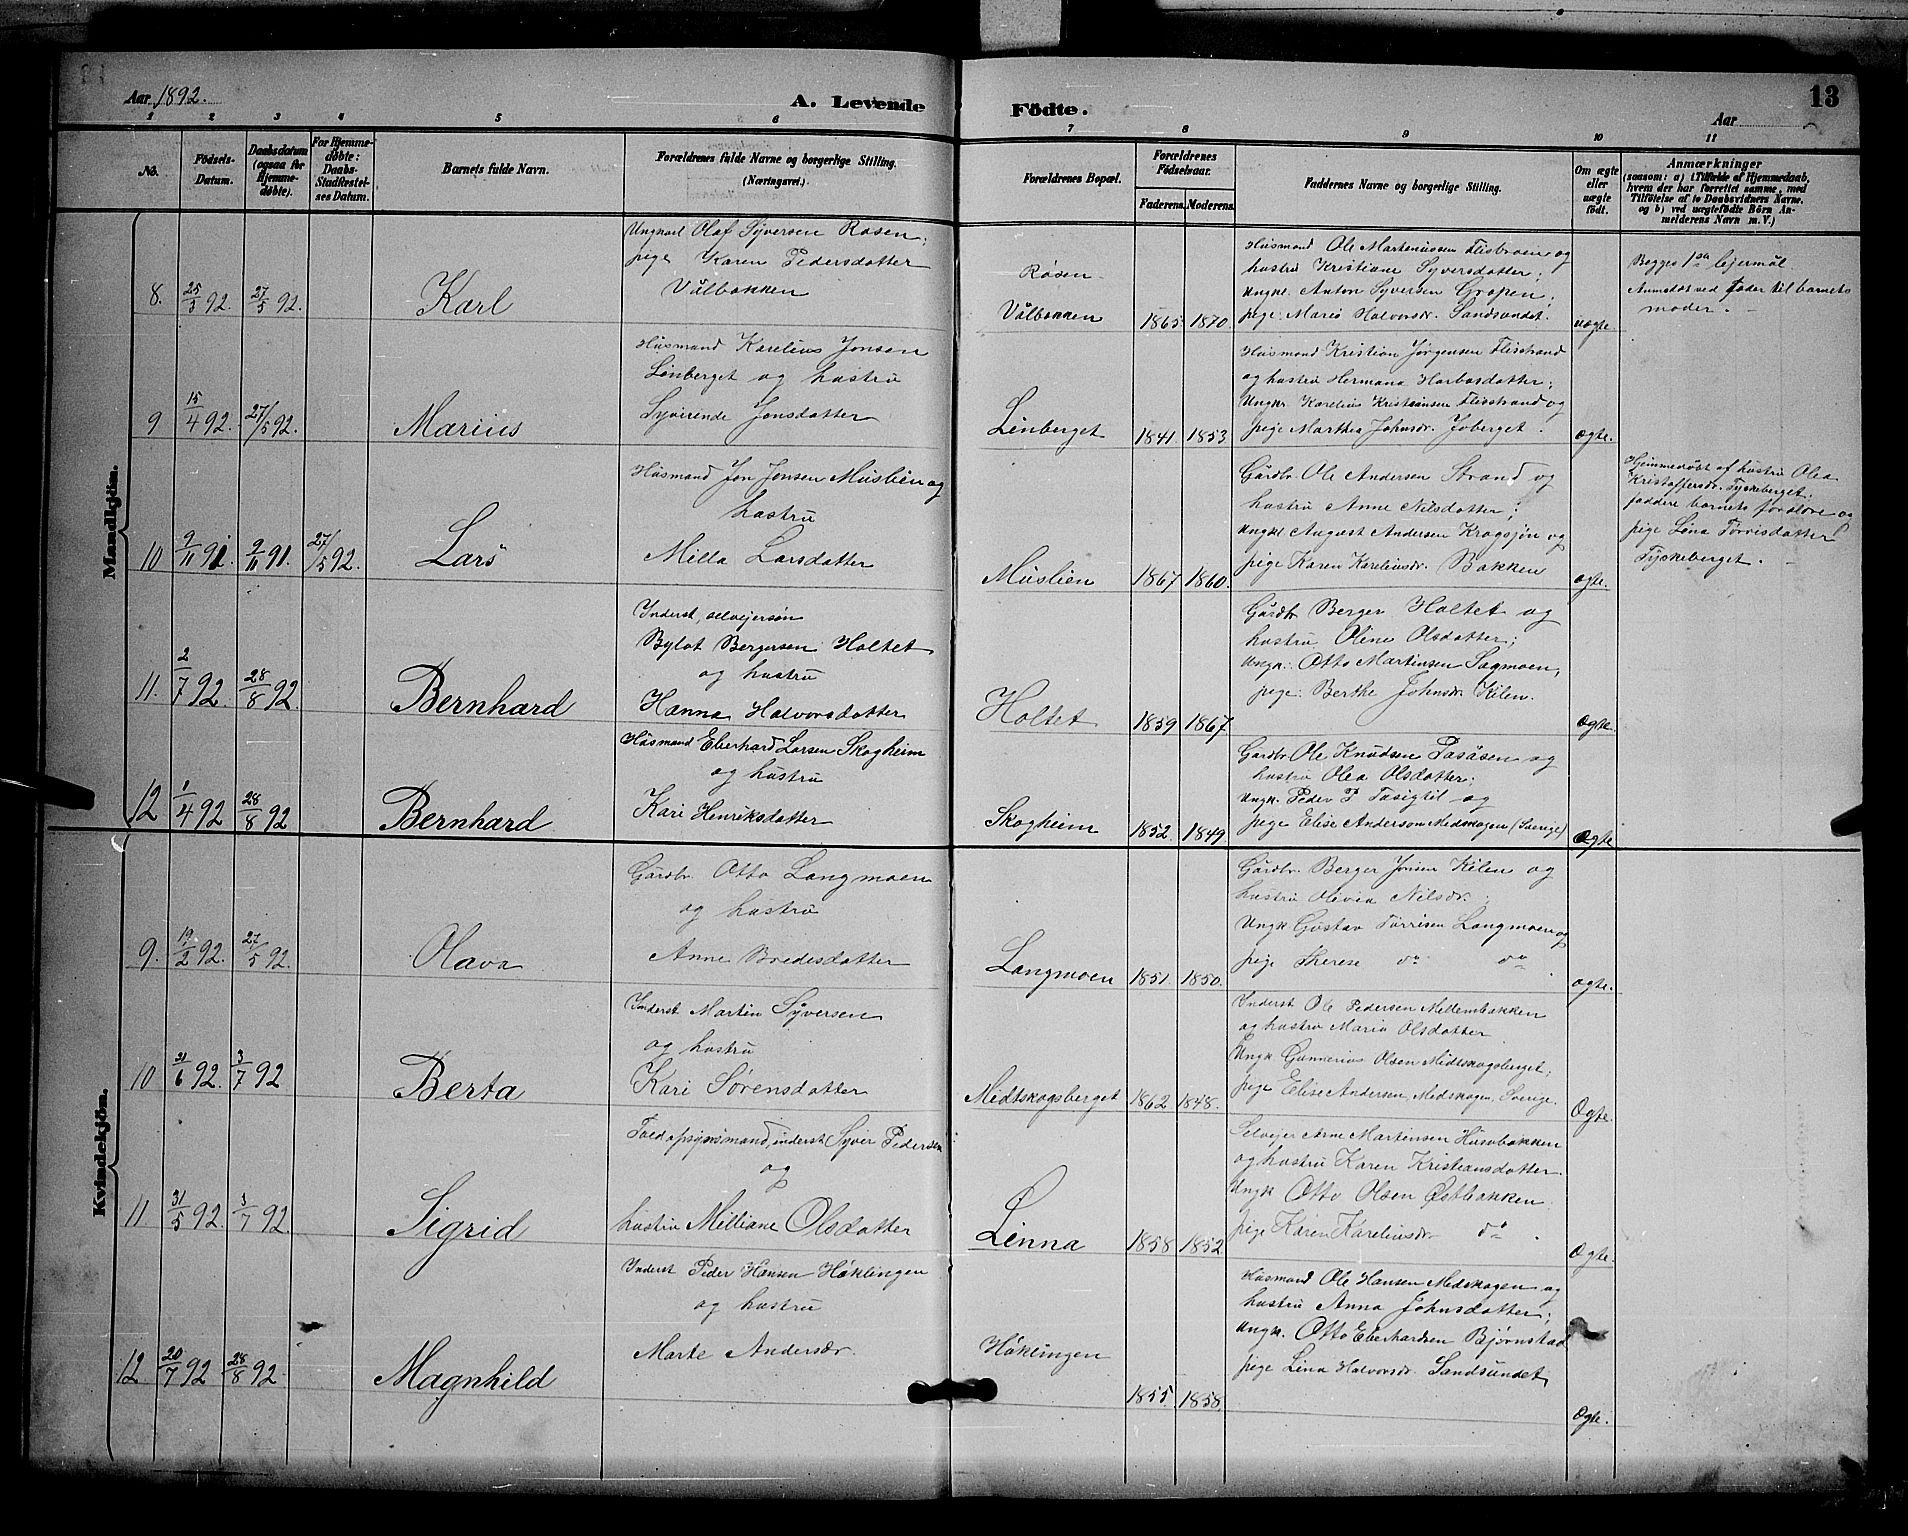 Aar 1892.
A. Levende
Födte.
Aar
13
1 2 3 4 5 6 7 8 9 10 11
No.
Födsels-
Datum.
Daabsdatum
(ogsaa for
Hjemme-
døbte).
For Hjemme-
døbte:
Daabs-
Stadfæstel-
ses Datum.
Barnets fulde Navn.
Forældrenes fulde Navne og borgerlige Stilling.
(Næringsvei.)
Forældrenes Bopæl.
Forældrenes
Födselsaar.
Faderens.
Moderens.
Faddernes Navne og borgerlige Stilling.
Om ægte
eller
uægte
født.
Anmærkninger
(saasom: a) i Tilfælde af Hjemmedaab,
hvem der har forrettet samme, med
Tilföielse af to Daabsvidners Navne.
og b) ved uægtefödte Börn An-
melderens Navn m. V.)
Mandkjön.
8. 25/3 92. 27/5 92. Karl
Ungkarl Olaf Syversen Rosen;
pige Karen Pedersdatter
Vålbakken
Røsen
Vålbakken 1865 1870.
Husmand Ole Martenussen Flisbraen og
hustru Kristiane Syversdatter;
Ungk. Anton Syversen Gropen;
pige: Marie Halvorsdr. Sandsundet.
uægte
Begges 1ste lejermål.
Anmeldt ved fader til barnets
moder.
9 15/4 92. 27/5 92. Marius
Husmand Karelius Jonsen
Linberget og hustru
Syverende Jonsdatter
Linberget 1841. 1853
Husmand Kristian Jørgensen Flisstrand
og hustru Hermana Harbosdatter;
Ungk. Karelius Kristiansen Flisstrand og
pige Marthea Johnsdr. Joberget.
ægte.
10 9/11 91. 9/11 91. 27/5 92. Lars
Husmand Jon Jonsen Muslien og
hustru
Milla Larsdatter
Muslien 1867 1860.
Gårdbr. Ole Andersen Strand og
hustru Anne Nilsdatter;
Ungkl August Andersen Krogsjøn og
pige Karen Kareliusdr. Bakken
ægte.
Hjemmedøbt af hustru Olea
Kristoffersdr. Tyskeberget;
faddere barnets forældre og
pige Lina Torrisdatter
Tyskeberget.
11. 2/7 92. 28/8 92. Bernhard
Inderst, selvejersøn
Bylot Bergersen Holtet
og hustru
Hanna Halvorsdatter
Holtet 1859 1867
Gårdb. Berger Holtet og
hustru Oline Olsdatter;
Ungk. Otto Martinsen Sagmoen,
pige: Berthe Johnsdr. Kilen.
Ægte.
12 1/4 92 28/8 92 Bernhard
Husmand Eberhard Larsen Skogheim
og hustru
Kari Henriksdatter
Skogheim 1852. 1849.
Gårdbr Ole Knudsen Tasåsen og
hustru Olea Olsdatter;
Ungk. Peder P. Tasigtil og
pige Elise Anderson Medskogen (Sverige)
Ægte
Kvindekjön.
9. 19/2 92. 27/5 92. Olava
Gårdbr. Otto Langmoen
og hustru
Anne Bredesdatter
Langmoen 1851. 1850.
Gårdbr. Berger Jonsen Kilen og
hustru Olivia Nilsdr.
Ungk Gustav Torrisen Langmoen og
pige Therese do do
ægte.
10 21/6 92. 3/7 92 Berta
Inderst Martin Syversen
og hustru
Kari Sørensdatter
Midtskogsberget 1862 1848.
Inderst Ole Pedersen Mellembakken
og hustru Maria Olsdatter
Ungk Gunnerius Olsen Midtskogsberget;
pige Elise Andersen, Medskogen, Sverige.
Ægte.
11. 31/5 92. 3/7 92 Sigrid
Toldopsynsmand, inderst Syver Pedersen
og
hustru Milliane Olsdatter
Linna 1858 1852
Selvejer Arne Martinsen Husobakken
og hustru Karen Kristiansdatter
Ungk Otto Olsen Østbakken
pige Karen Kareliusdr do.
Ægte.
12 20/7 92 28/8 92. Magnhild
Inderst Peder Hansen Høklingen
og hustru
Marte Andersdr.
Høklingen
1855. 1858.
Husmand Ole Hansen Medskogen og
hustru Anna Johnsdatter;
Ungk. Otto Eberhardsen Bjørnstad
pige Lina Halvorsdr. Sandsundet,
Ægte.